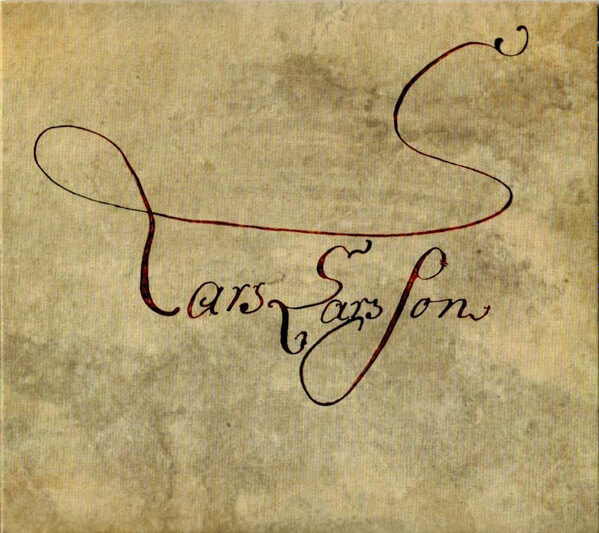 Lars LarsSon